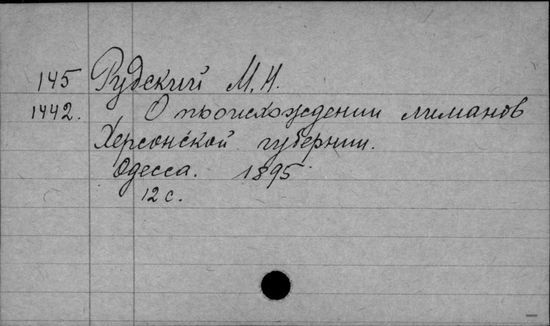 145 Рудский М. Н.
1442. О происхождении лиманов
Херсонской губернии.
Одесса. 1895
12 с.